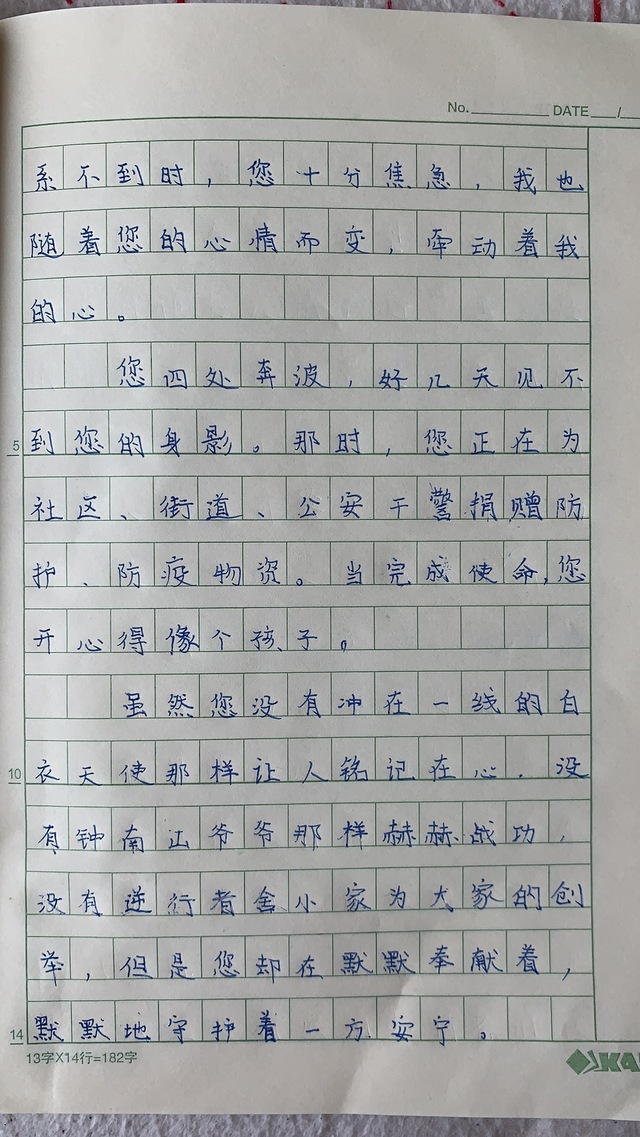 No. DATE /
系不到时，您十分焦急，我也
随着您的心情而变，牵动着我
的心。
您四处奔波，好几天见不
5 到您的身影。那时，您正在为
社区、街道、公安干警捐赠防
护、防疫物资。当完成使命,您
开心得像个孩子。
虽然您没有冲在一线的白
10 衣天使那样让人铭记在心，没
有钟南山爷爷那样赫赫战功，
没有逆行者舍小家为大家的创
举，但是您却在默默奉献着，
14 默默地守护着一方安宁。
13字X14行=182字